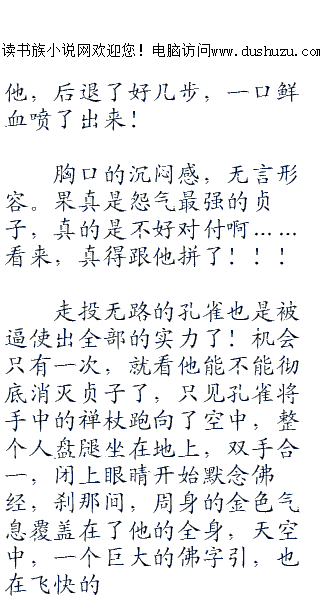 读书族小说网欢迎您！电脑访问www.dushuzu.com
他，后退了好几步，一口鲜
血喷了出来！
胸口的沉闷感，无言形
容。果真是怨气最强的贞
子，真的是不好对付啊……
看来，真得跟他拼了！！！
走投无路的孔雀也是被
逼使出全部的实力了！机会
只有一次，就看他能不能彻
底消灭贞子了，只见孔雀将
手中的禅杖跑向了空中，整
个人盘腿坐在地上，双手合
一，闭上眼睛开始默念佛
经，刹那间，周身的金色气
息覆盖在了他的全身，天空
中，一个巨大的佛字引，也
在飞快的